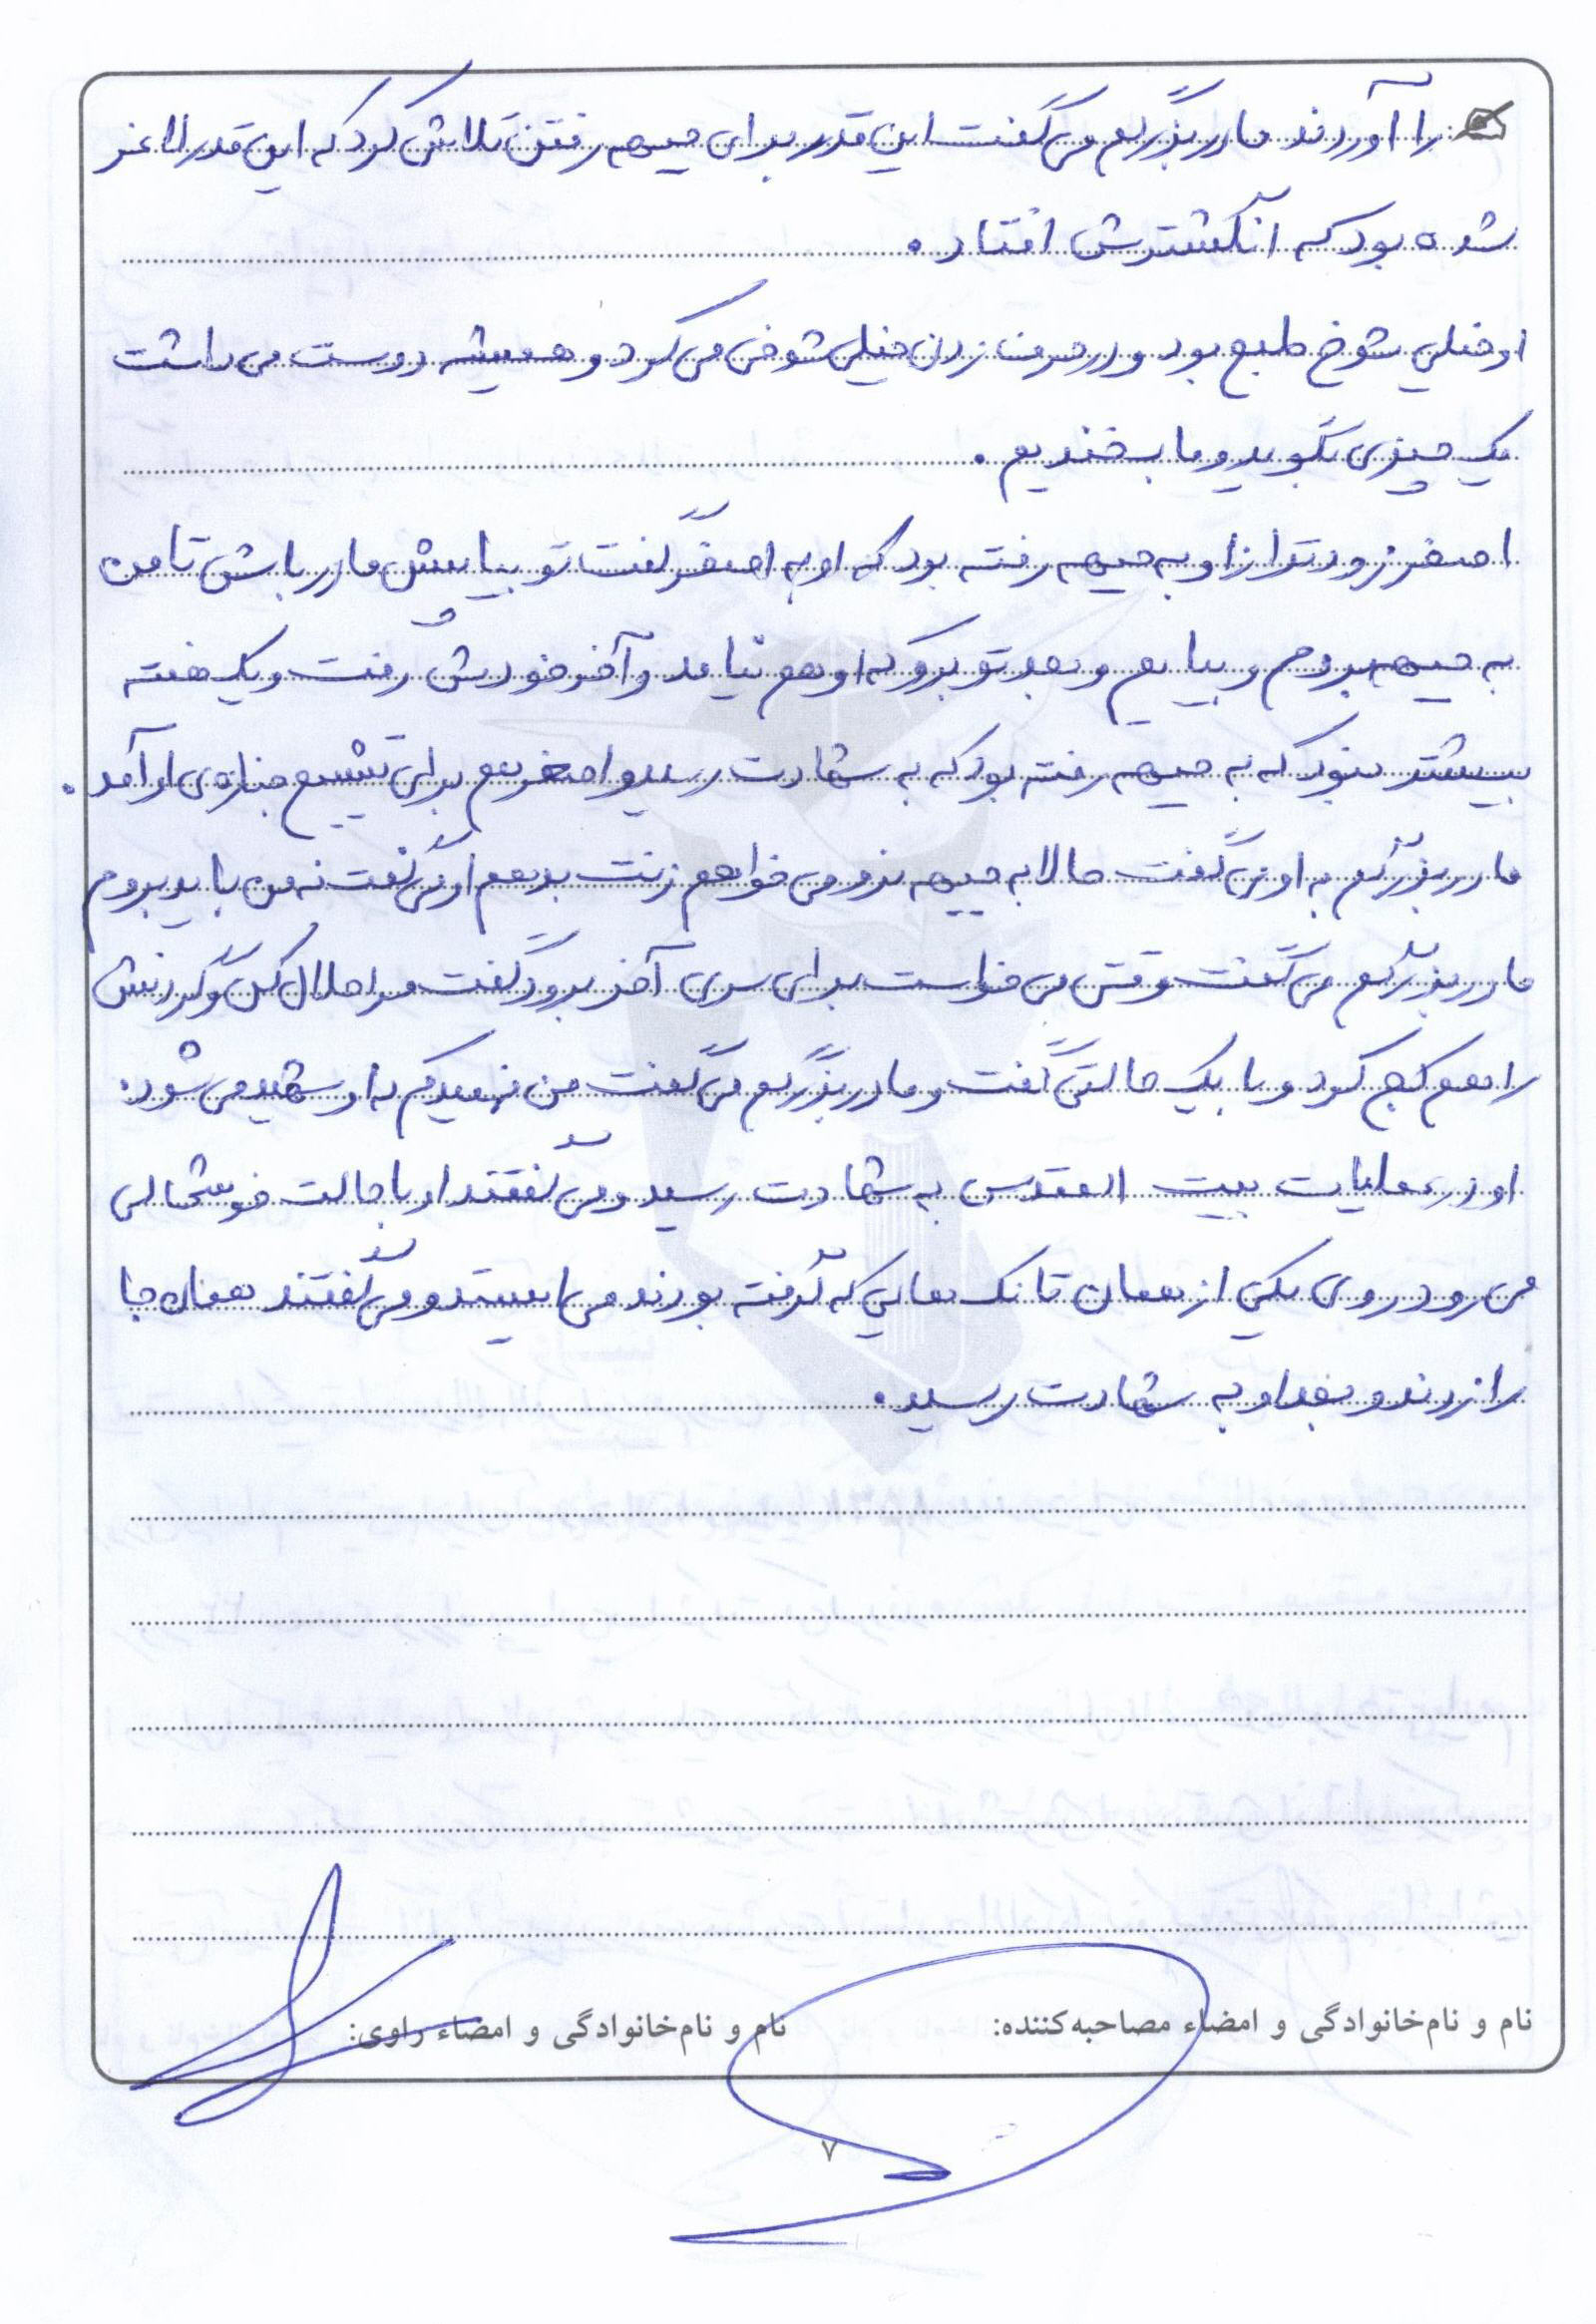 را آوردند مادربزرگم می گفت این قدر برای جبهه رفتن تلاش کرد که این قدر لاغر
شده بود که انگشترش افتاد.
او خیلی شوخ طبع بود و در حرف زدن خیلی شوخی می کرد و همیشه دوست می داشت
یک چیزی بگوید و ما بخندیم.
اصغر زودتر از او به جبهه رفته بود که او به اصغر گفت تو بیا پیش مادر باش تا من
به جبهه بروم و بیایم و بعد تو برو که او هم نیامد و آخر خودش رفت و یک هفته
بیشتر نبود که به جبهه رفته بود که به شهادت رسید و اصغر هم برای تشییع جنازه ی او آمد.
مادربزرگم به او می گفت حالا به جبهه نرو می خواهم زنت بدهم او می گفت نه من باید بروم
مادربزرگم می گفت وقتی می خواست برای سری آخر برود گفت مرا حلال کن و گردنش
را هم کج کرد و با یک حالتی گفت و مادربزرگم می گفت من فهمیدم که او شهید می شود.
او در عملیات بیت المقدس به شهادت رسید و می گفتند او با حالت خوشحالی
می رود روی یکی از همان تانک هایی که گرفته بودند می ایستد و می گفتند همان جا
را زدند و بعد او به شهادت رسید.
نام و نام‌خانوادگی و امضاء مصاحبه‌کننده: نام و نام‌خانوادگی و امضاء راوی:
۷